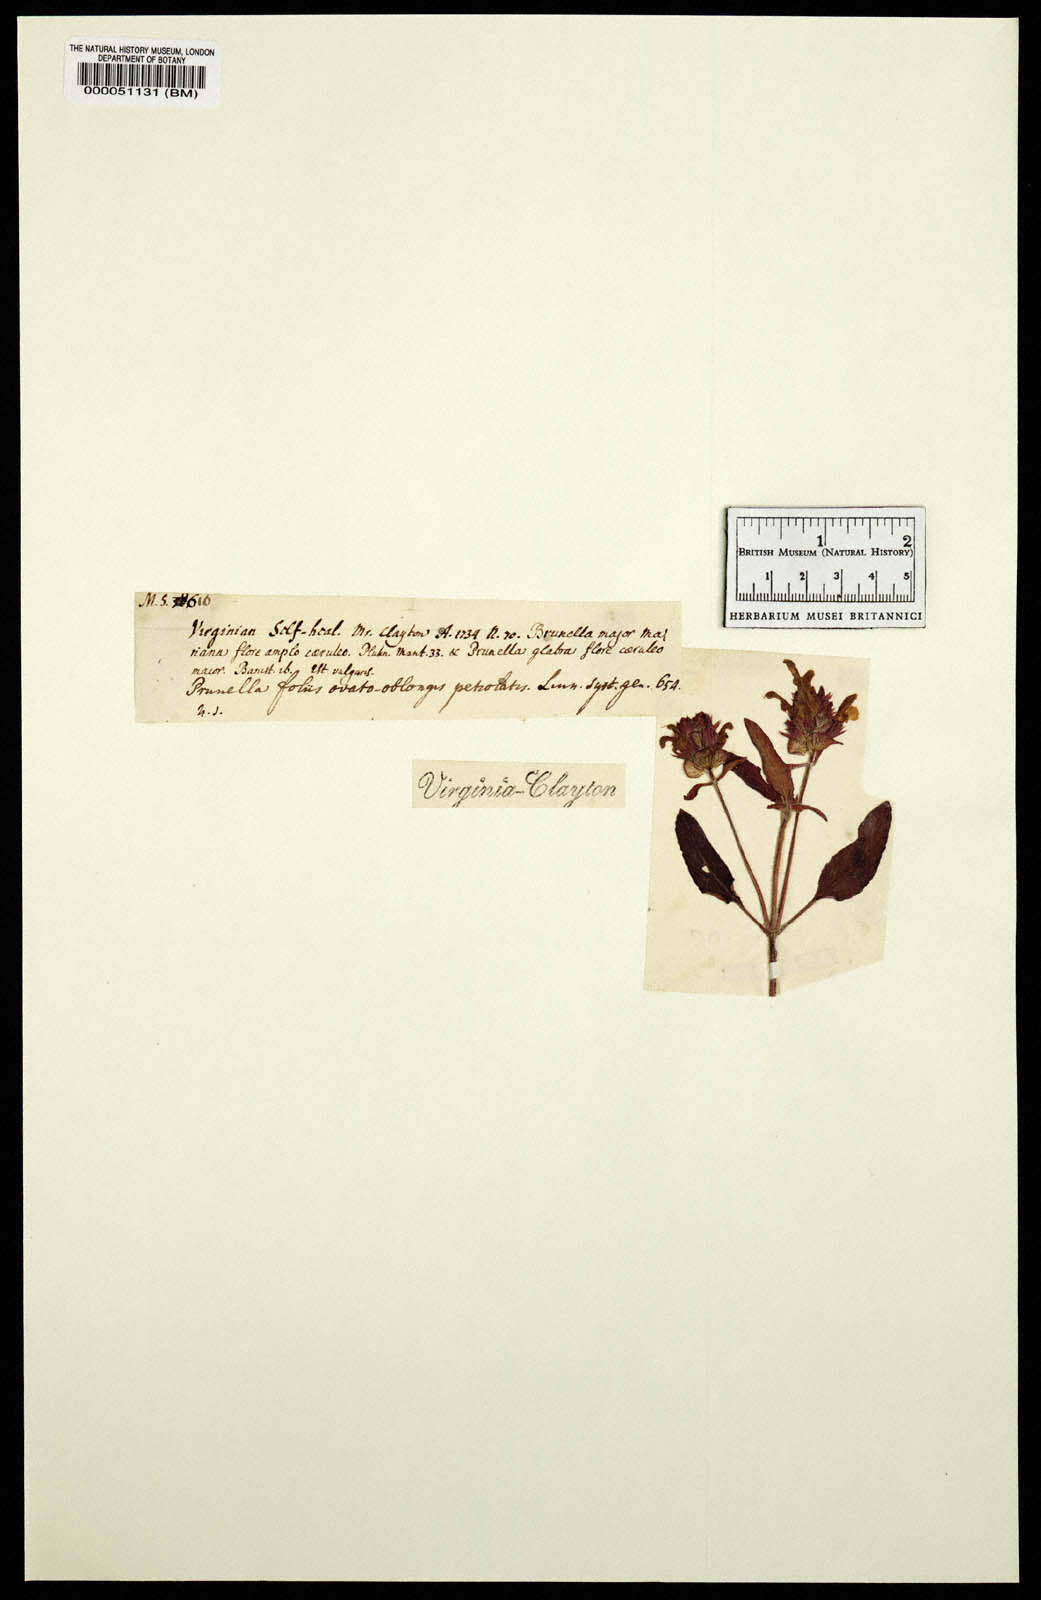 THE NATURAL HISTORY MUSEUM, LONDON
DEPARTMENT OF BOTANY
000051131 (BM)
1 2
BRITISH MUSEUM (NATURAL HISTORY)
1 2 3 4 5
HERBARIUM MUSEI BRITANNICI
M.S. 616
Virginian Self-heal. Mr. Clayton A. 1734 N. 70. Brunella major Ma-
riana flore amplo cæruleo. Plukn. Mant. 33. & Brunella glabra flore cæruleo
major. Banist. ib. Ut vulgaris.
Prunella foliis ovato-oblongis petiolatis. Linn. Syst. gen. 654.
n. 1.
Virginia-Clayton